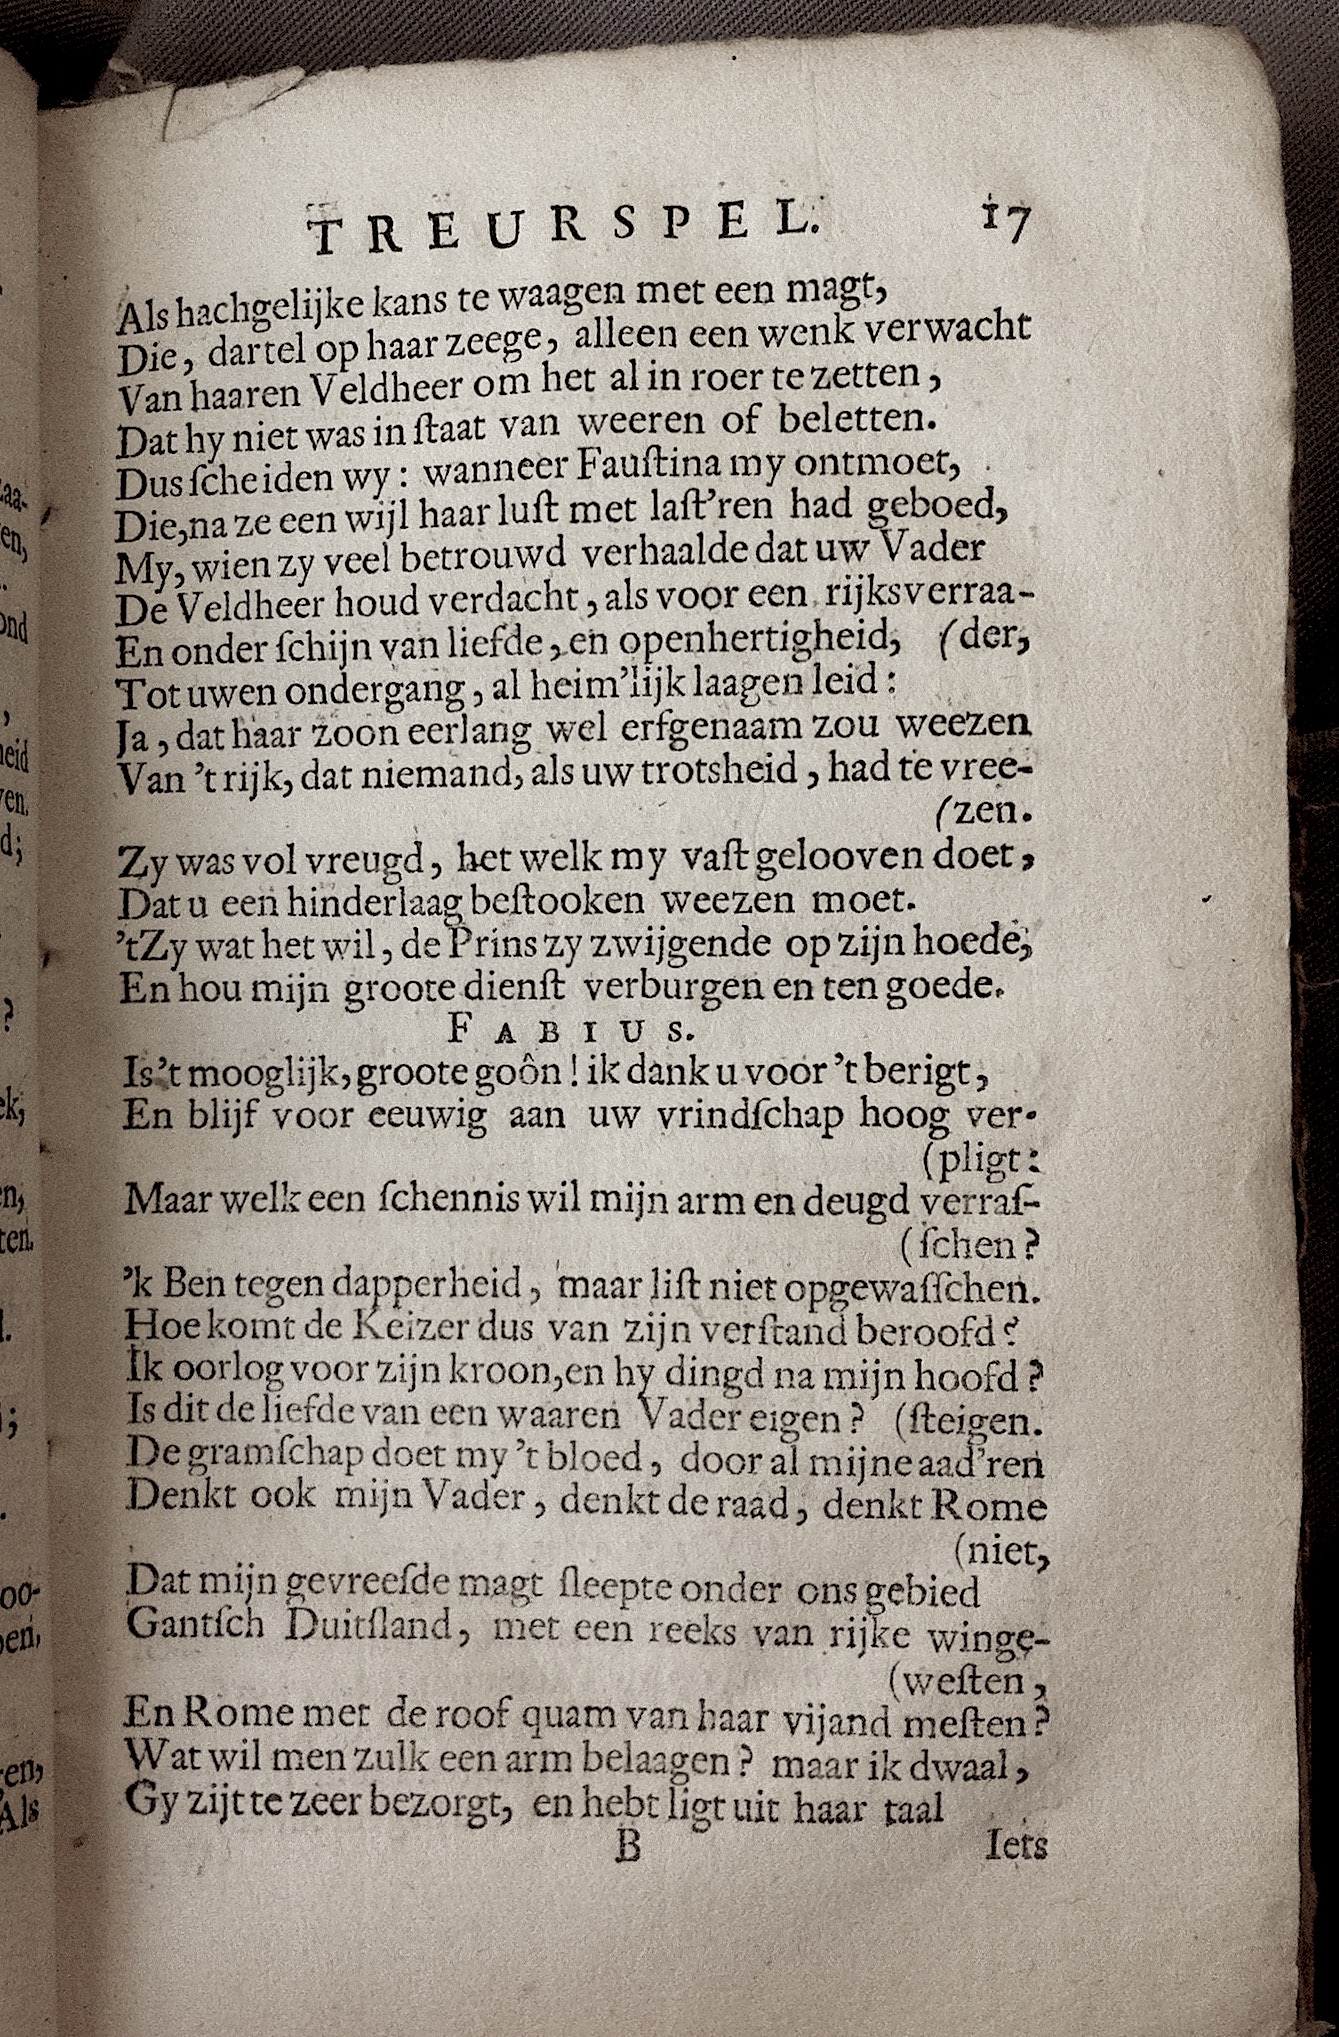 TREURSPEL. 17
Als hachgelijke kans te waagen met een magt,
Die, dartel op haar zeege, alleen een wenk verwacht
Van haaren Veldheer om het al in roer te zetten,
Dat hy niet was in ſtaat van weeren of beletten.
Dus ſcheiden wy: wanneer Fauſtina my ontmoet,
Die, na ze een wijl haar luſt met laſt’ren had geboed,
My, wien zy veel betrouwd verhaalde dat uw Vader
De Veldheer houd verdacht, als voor een rijksverraa-
En onder ſchijn van liefde, en openhertigheid, (der,
Tot uwen ondergang, al heim’lijk laagen leid:
Ja, dat haar zoon eerlang wel erfgenaam zou weezen
Van ’t rijk, dat niemand, als uw trotsheid, had te vree-
(zen.
Zy was vol vreugd, het welk my vaſt gelooven doet,
Dat u een hinderlaag beſtooken weezen moet.
’t Zy wat het wil, de Prins zy zwijgende op zijn hoede,
En hou mijn groote dienſt verburgen en ten goede.
FABIUS.
Is ’t mooglijk, groote goôn! ik dank u voor ’t berigt,
En blijf voor eeuwig aan uw vrindſchap hoog ver-
(pligt:
Maar welk een ſchennis wil mijn arm en deugd verraſ-
(ſchen?
’k Ben tegen dapperheid, maar liſt niet opgewaſſchen.
Hoe komt de Keizer dus van zijn verſtand beroofd?
Ik oorlog voor zijn kroon, en hy dingd na mijn hoofd?
Is dit de liefde van een waaren Vader eigen? (ſteigen.
De gramſchap doet my ’t bloed, door al mijne aad’ren
Denkt ook mijn Vader, denkt de raad, denkt Rome
(niet,
Dat mijn gevreeſde magt ſleepte onder ons gebied
Gantſch Duitſland, met een reeks van rijke winge-
(weſten,
En Rome met de roof quam van haar vijand meſten?
Wat wil men zulk een arm belaagen? maar ik dwaal,
Gy zijt te zeer bezorgt, en hebt ligt uit haar taal
B Iets